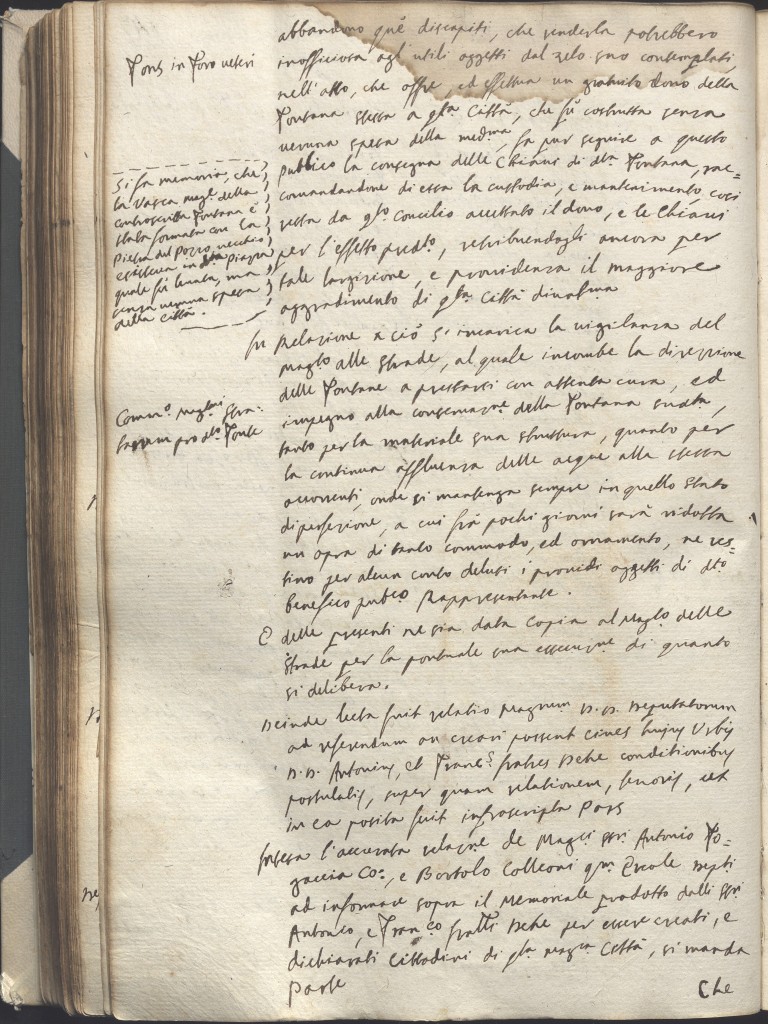 abbandono què discapiti, che renderla potrebbero
Fons in Foro veteri
inofficiosa agl'utili oggetti dal zelo suo contemplati,
nell'atto, che offre, ed effettua un gratuito dono della
Fontana stessa a qta Città, che fù costrutta senza
veruna spesa della medma, fa pur seguire a questo
publico la consegna delle Chiavi di dta Fontana, rac=
comandandone di essa la custodia, e mantenimento, così
resta da qto Concilio accettato il dono, e le Chiavi
per l'effetto predto, retribuendogli ancora per
tale largizione, e providenza il maggiore
aggradimento di qta Città
Si fa memoria, che
la Vasca della
controscritta Fontana è
stata formata con la
Pietra del Pozzo vecchio
esisteva in dta Piazza
quale fù levata, ma
senza veruna spesa
della Città.
In Relazione a ciò s'incarica la vigilanza del
Magto alle strade, al quale incombe la direzione
delle Fontane a prestarsi con attenta cura, ed
impegno alla conservazne della Fontana sudta,
Commo
pro dto Fonte
tanto per la materiale sua struttura, quanto per
la continua affluenza delle acque alla stessa
occorrenti, onde si mantenga sempre in quello stato
di perfezione, a cui frà pochi giorni sarà ridotta
un opra di tanto commodo, ed ornamento, ne res=
tino per alcun conto delusi i providi oggetti di dto
benefico pubco Rappresentante.
E delle presenti ne sia data copia al Magto delle
strade per la pontuale sua essecuzne di quanto
si delibera.
Deinde lecta fuit relatio Magnum D.D. Deputatorum
ad referendum an creari possent cives hujus Urbis
D.D. Antonius, et Francs fratres Dehe conditionibus
postulatis, super quam relationem, tenoris, ut
in ea posita fuit infrascripta Pars
Intesa l'accurata relazne de Magci ssri Antonio Fo=
gaccia Co:, e Bortolo Colleoni qm Ercole Depti
ad informare sopra il Memoriale prodotto dalli ssri
Antonio, e Franco fratlli Dehe per essere creati, e
dichiarati Cittadini di qta magca Città, si manda
Parte
Che